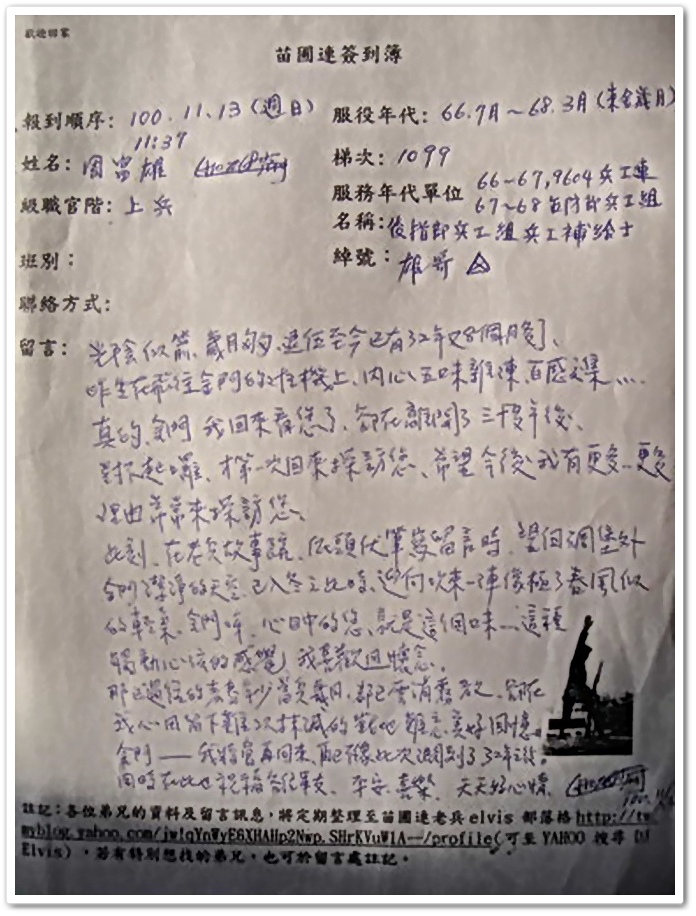 歡迎回家
苗圃連簽到簿
報到順序: 100.11.13(週日)
11:37
服役年代: 66.7月~68.3月(東含歲月)
姓名: 周富雄
梯次: 1099
級職官階: 上兵
服務年代單位 66~67,9604兵工連
67~68 防部兵工組
名稱: 後指部兵工組兵工補給士
班別:
綽號: 雄哥
聯絡方式:
留言: 光陰似箭、歲月匆匆、退伍至今已有32年又8個月餘、
昨坐在飛往金門的班機上、內心五味雜陳、百感交集….
真的、金門 我回來看您了、卻在離開了三十幾年後、
對不起囉、才第一次回來探訪您、希望今後我有更多…更多
理由常常來探訪您、
此刻、在老兵故事館、低頭伏筆寫留言時、望向碉堡外
金門潔淨的天空、已入冬之此時、迎向吹來一陣像極了春風似
的輕柔、金門呀、心目中的您、就是這個味…、這種
觸動心弦的感覺、我喜歡且懷念、
那已過往的青春年少當兵歲月、都已雲消霧散、卻在
我心田留下難以抹滅的 難忘美好回憶、
金門——我將會再回來、 不像此次遲到了32年之後。
同時在此也祝福各位軍友、平安、喜樂、天天好心情、
註記:各位弟兄的資料及留言訊息,將定期整理至苗圃連老兵elvis 部落格http://tw.
myblog.yahoo.com/jw!qYnWyE6XHAHp2Nwp.SHrKVuW1A--/profile(可至 YAHOO 搜尋 DJ
Elvis),若有特別想找的弟兄,也可於留言處註記。